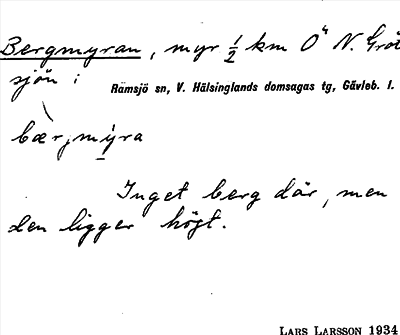 Bergmyran, myr ½ km O" N. Gröt
sjön i
Ramsjö sn, V. Hälsinglands domsagas tg, Gävleb. l.
bær,mýra
Inget berg där, men
den ligger högt.
LARS LARSSON 1934